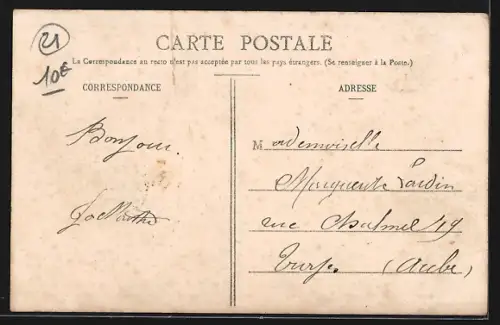 21
10€
CARTE POSTALE
La Correspondance au recto n'est pas acceptée par tous les pays étrangers. (Se renseigner à la Poste.)
CORRESPONDANCE
ADRESSE
Bonjour.
Mademoiselle
Marguerite
rue 19
(Aube)